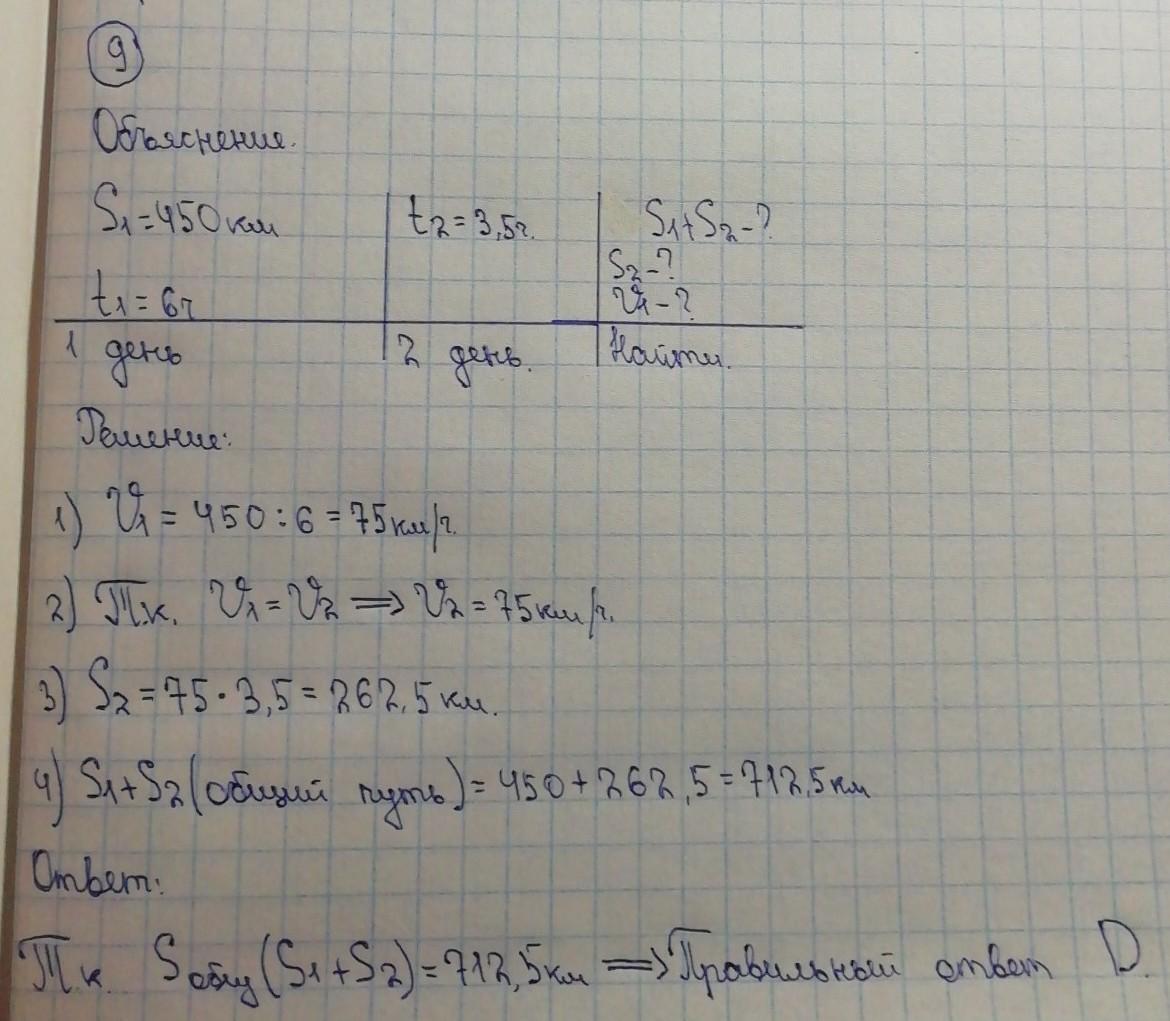 9
Объяснение.
S₁=450км t₂=3,5ч. S₁+S₂-?
S₂-?
t₁=6ч V₁-?
1 день 2 день. Найти.
Решение:
1) V₁=450:6=75км/ч.
2) Т.к. V₁=V₂ ⟹ V₂=75км/ч.
3) S₂=75·3,5=262,5км.
4) S₁+S₂(общий путь)=450+262,5=712,5км
Ответ:
Т.к. Sобщ(S₁+S₂)=712,5км ⟹ Правильный ответ D.